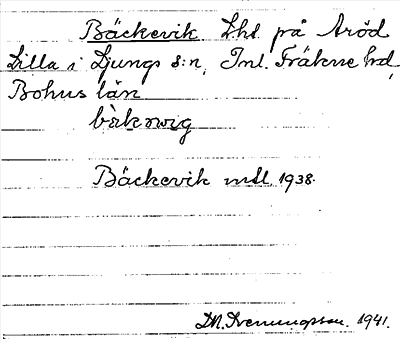 Bäckevik Lht. på Aröd
Lilla i Ljungs s:n, Inl. Fräkne hd,
Bohus län
Bäckevik mtl. 1938.
1941.